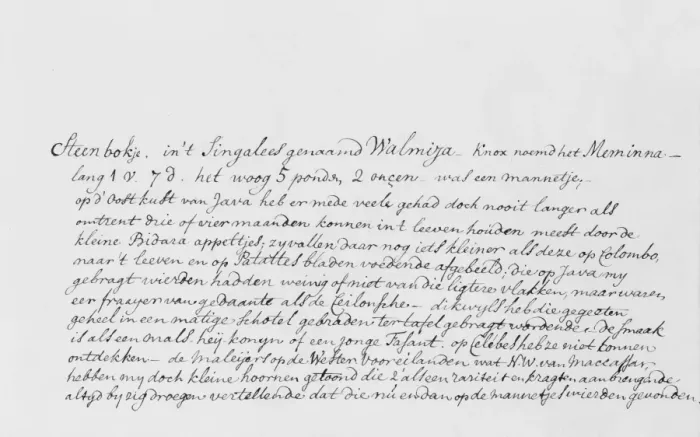 Steenbokje. in't Singalees genaamd Walmiza - Knox noemd het Meminna -
lang 1 v. 7 d. het woog 5 ponden, 2 oncen - was een mannetje, -
op d' Oost kust van Java heb er mede veele gehad doch nooit langer als
omtrent drie of vier maanden konnen in't leeven houden meest door de
kleine Bidara appeltjes; zy vallen daar nog iets kleiner als deze op Colombo,
naar't leeven en op Patattes bladen voedende afgebeeld, die op Java my
gebragt wierden hadden weinig of niet van die ligtere vlakken, maar waren
een fraayer van gedaante als de Ceilonsche - dikwyls heb die gegeten
geheel in een matige schotel gebraden ter tafel gebragt wordende. De smaak
is als een mals heij konyn of een jonge Fasant. op Celebes heb ze niet konnen
ontdekken - de Maleijers op de Wester voor eilanden wat N.W. van Maccassar
hebben my doch kleine hoornen getoond die z' als een rariteit en kragt aanbrengende
altyd by zig droegen vertellende dat die nu en dan op de mannetjes wierden gevonden.